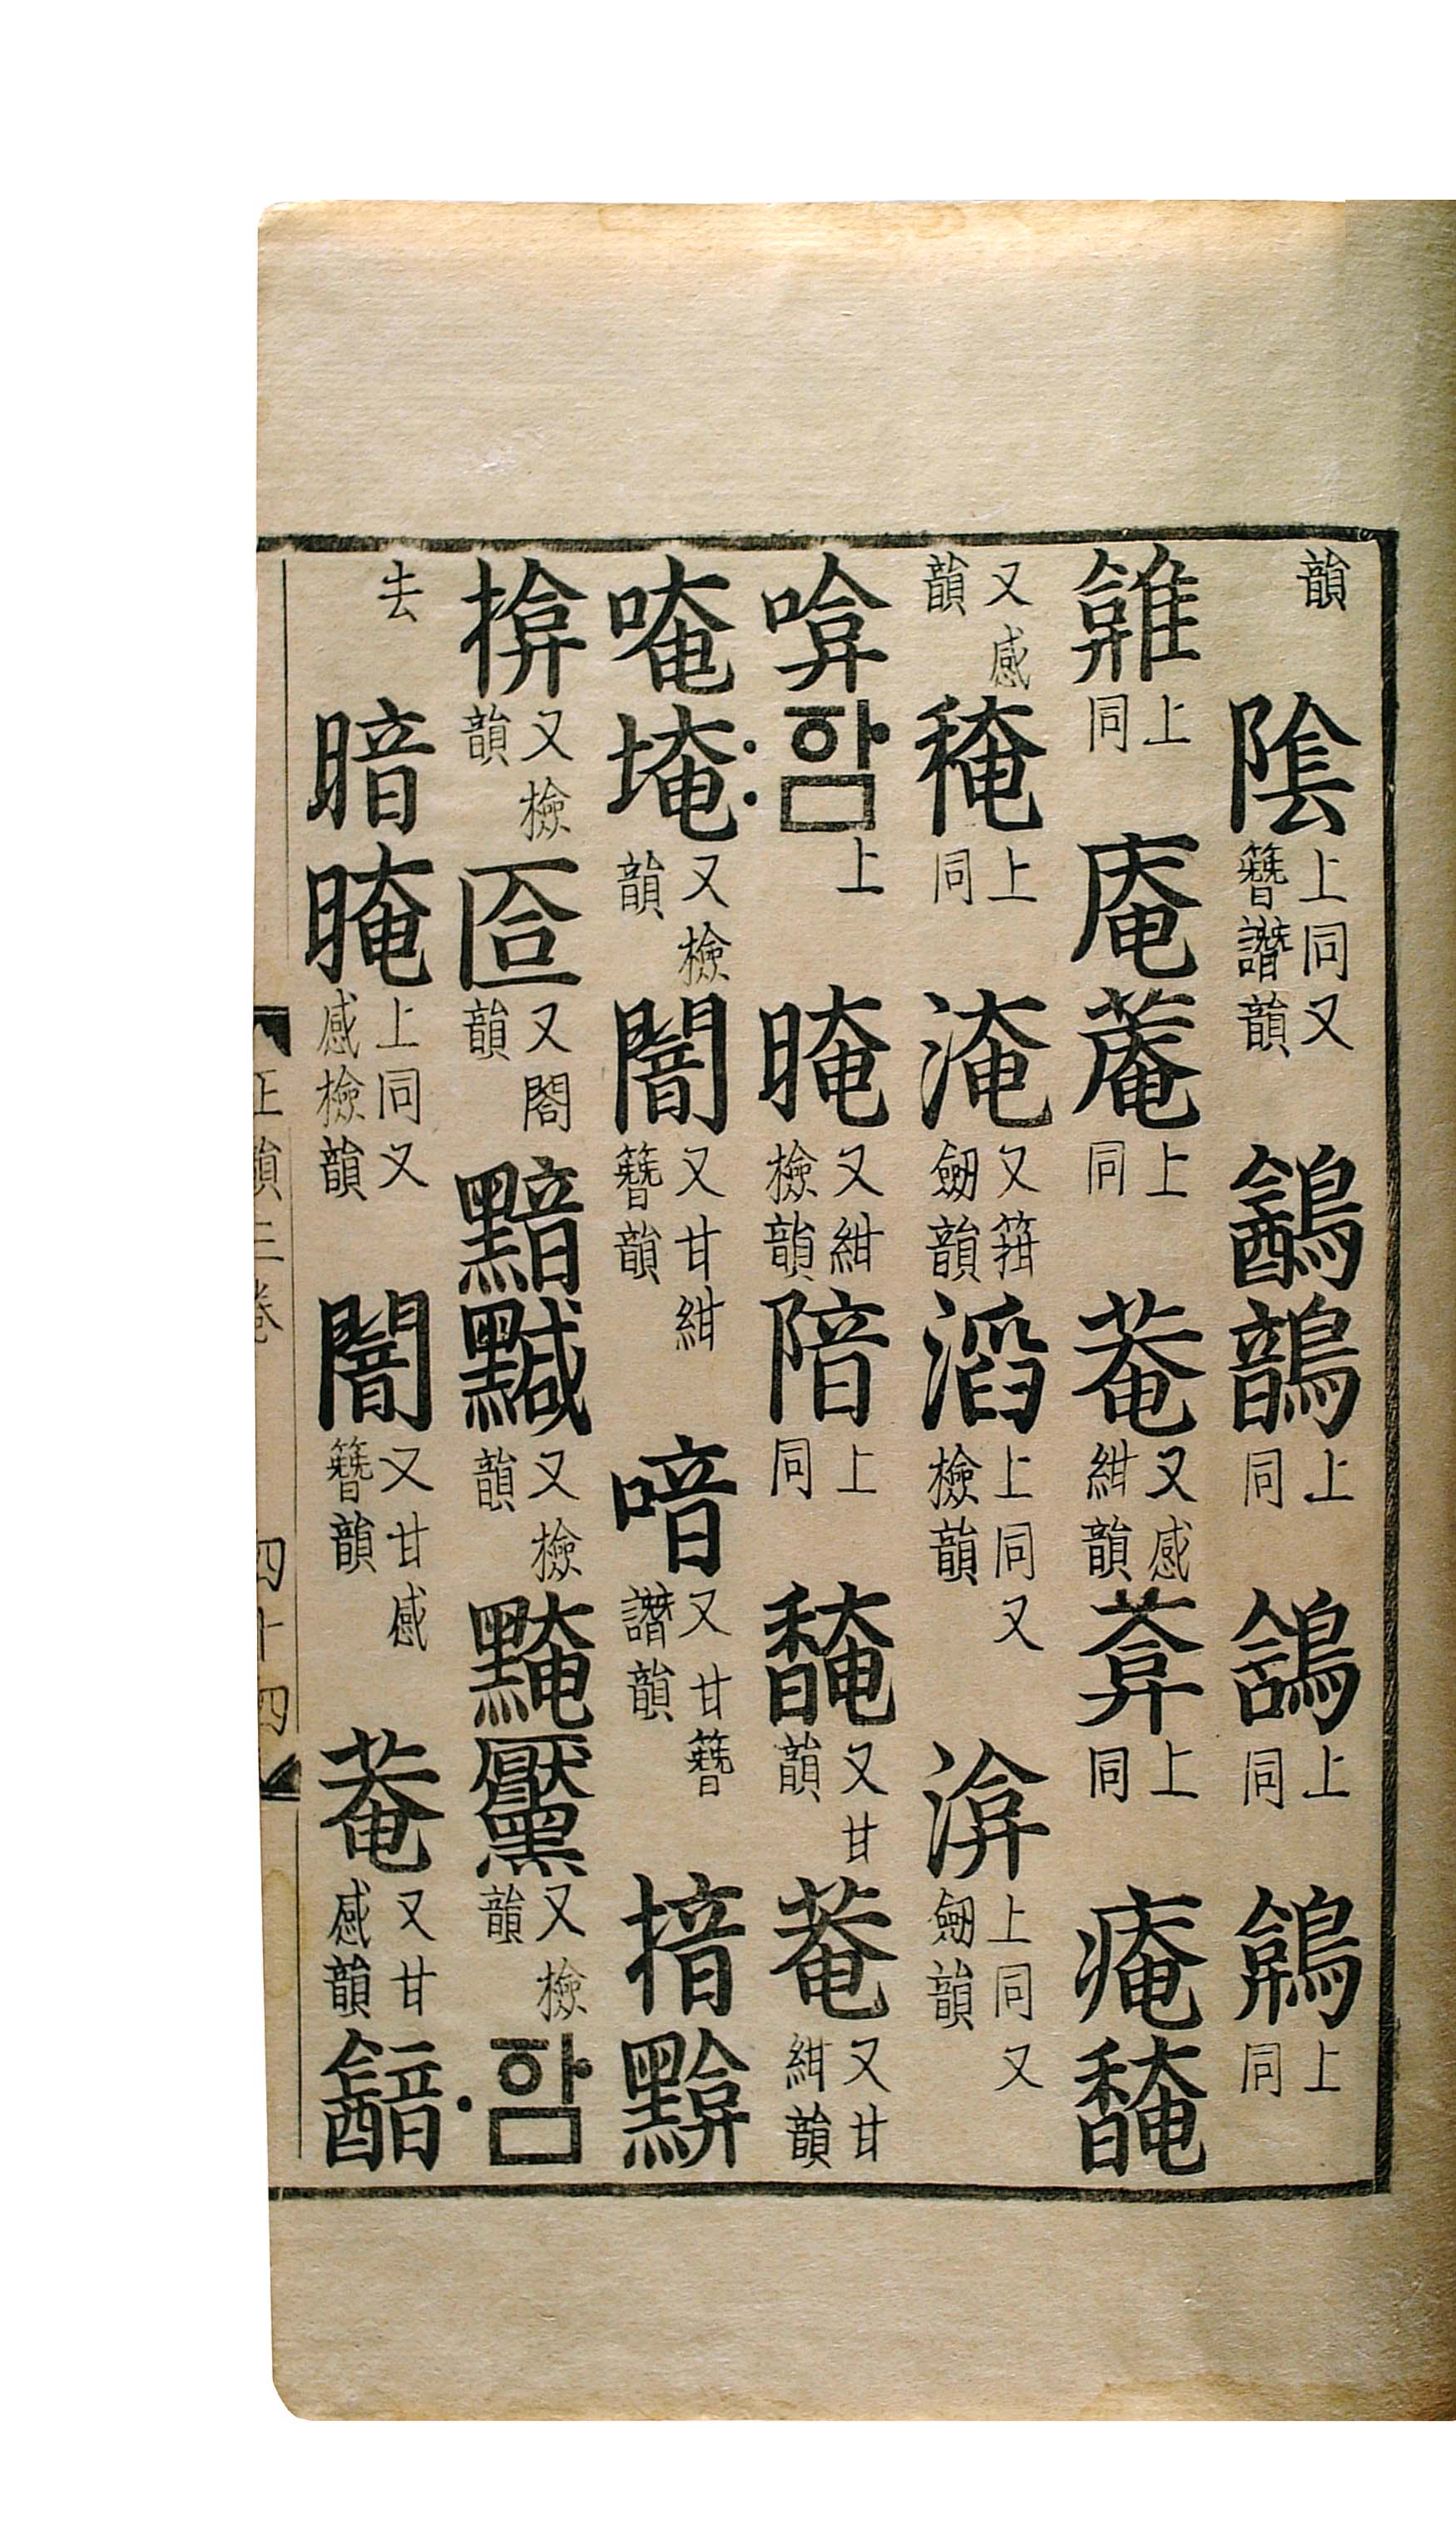 韻 隂 上同又簪譖韻 䳺 鶕 上同 上同 上同
上同 庵 蓭 上同 菴 又感紺韻 葊 上同 痷 馣
又感韻 䅖 上同 淹 又箝劒韻 淊 上同又檢韻 渰 上同又劒韻
함 上 晻 又紺檢韻 隌 上同 馣 又甘韻 菴 又甘紺韻
唵 埯 又檢韻 闇 又甘紺簪韻 喑 又甘簪譖韻 揞 黭
揜 又檢韻 匼 又閤韻 黯 黬 又檢韻 黤 黶 又檢韻 함
去 暗 晻 上同又感檢韻 闇 又甘感簪韻 菴 又甘感韻 韽
正韻三卷 四十四